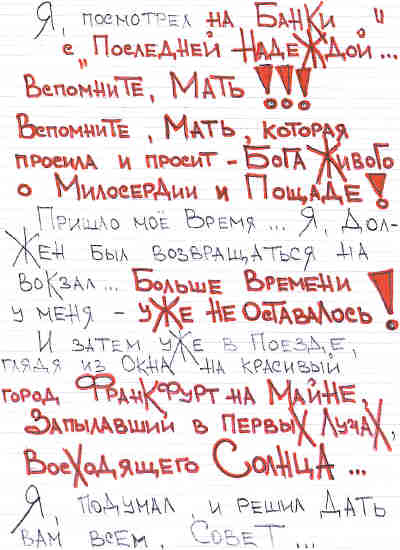 Я, посмотрел на Банки, "
с "Последней Надеждой...
Вспомните, Мать!!!
Вспомните, Мать, которая
просила и просит - Бога Живого
о Милосердии и Пощаде!
Пришло моё Время... Я, дол-
жен был возвращаться на
вокзал... Больше Времени
у меня - уже не оставалось!
И затем уже в Поезде,
глядя из Окна на красивый
город Франкфурт на Майне,
Запылавший в Первых Лучах,
Восходящего Солнца...
Я, подумал, и решил Дать
вам всем, Совет...